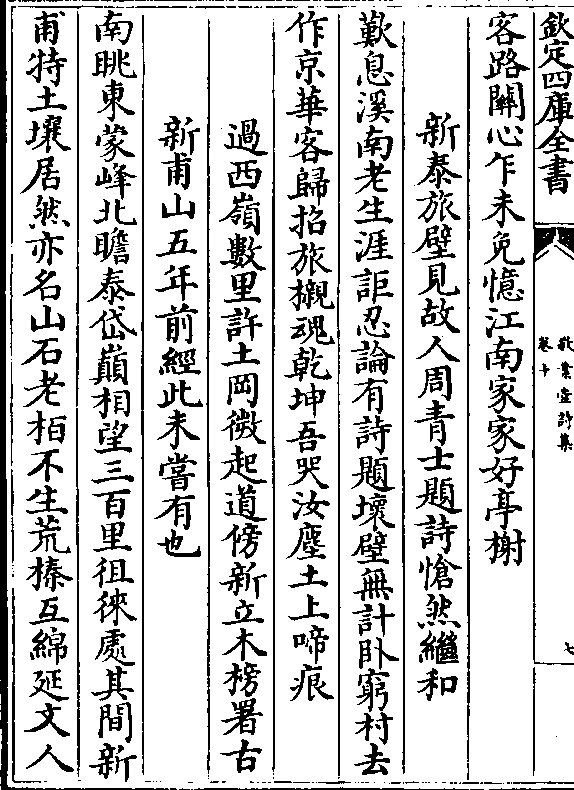 欽定四庫全書
敬業堂詩集
卷十
七
客路關心乍未免憶江南家家好亭榭
新泰旅壁見故人周青士題詩愴然繼和
歎息溪南老生涯詎忍論有詩題壞壁無計卧窮村去
作京華客歸招旅櫬魂乾坤吾哭汝塵土上啼痕
過西嶺數里許土岡微起道傍新立木榜署古
新甫山五年前經此未嘗有也
南眺東蒙峰北瞻泰岱巔相望三百里徂徠處其間新
甫特土壤居然亦名山石老柏不生荒榛互綿延文人